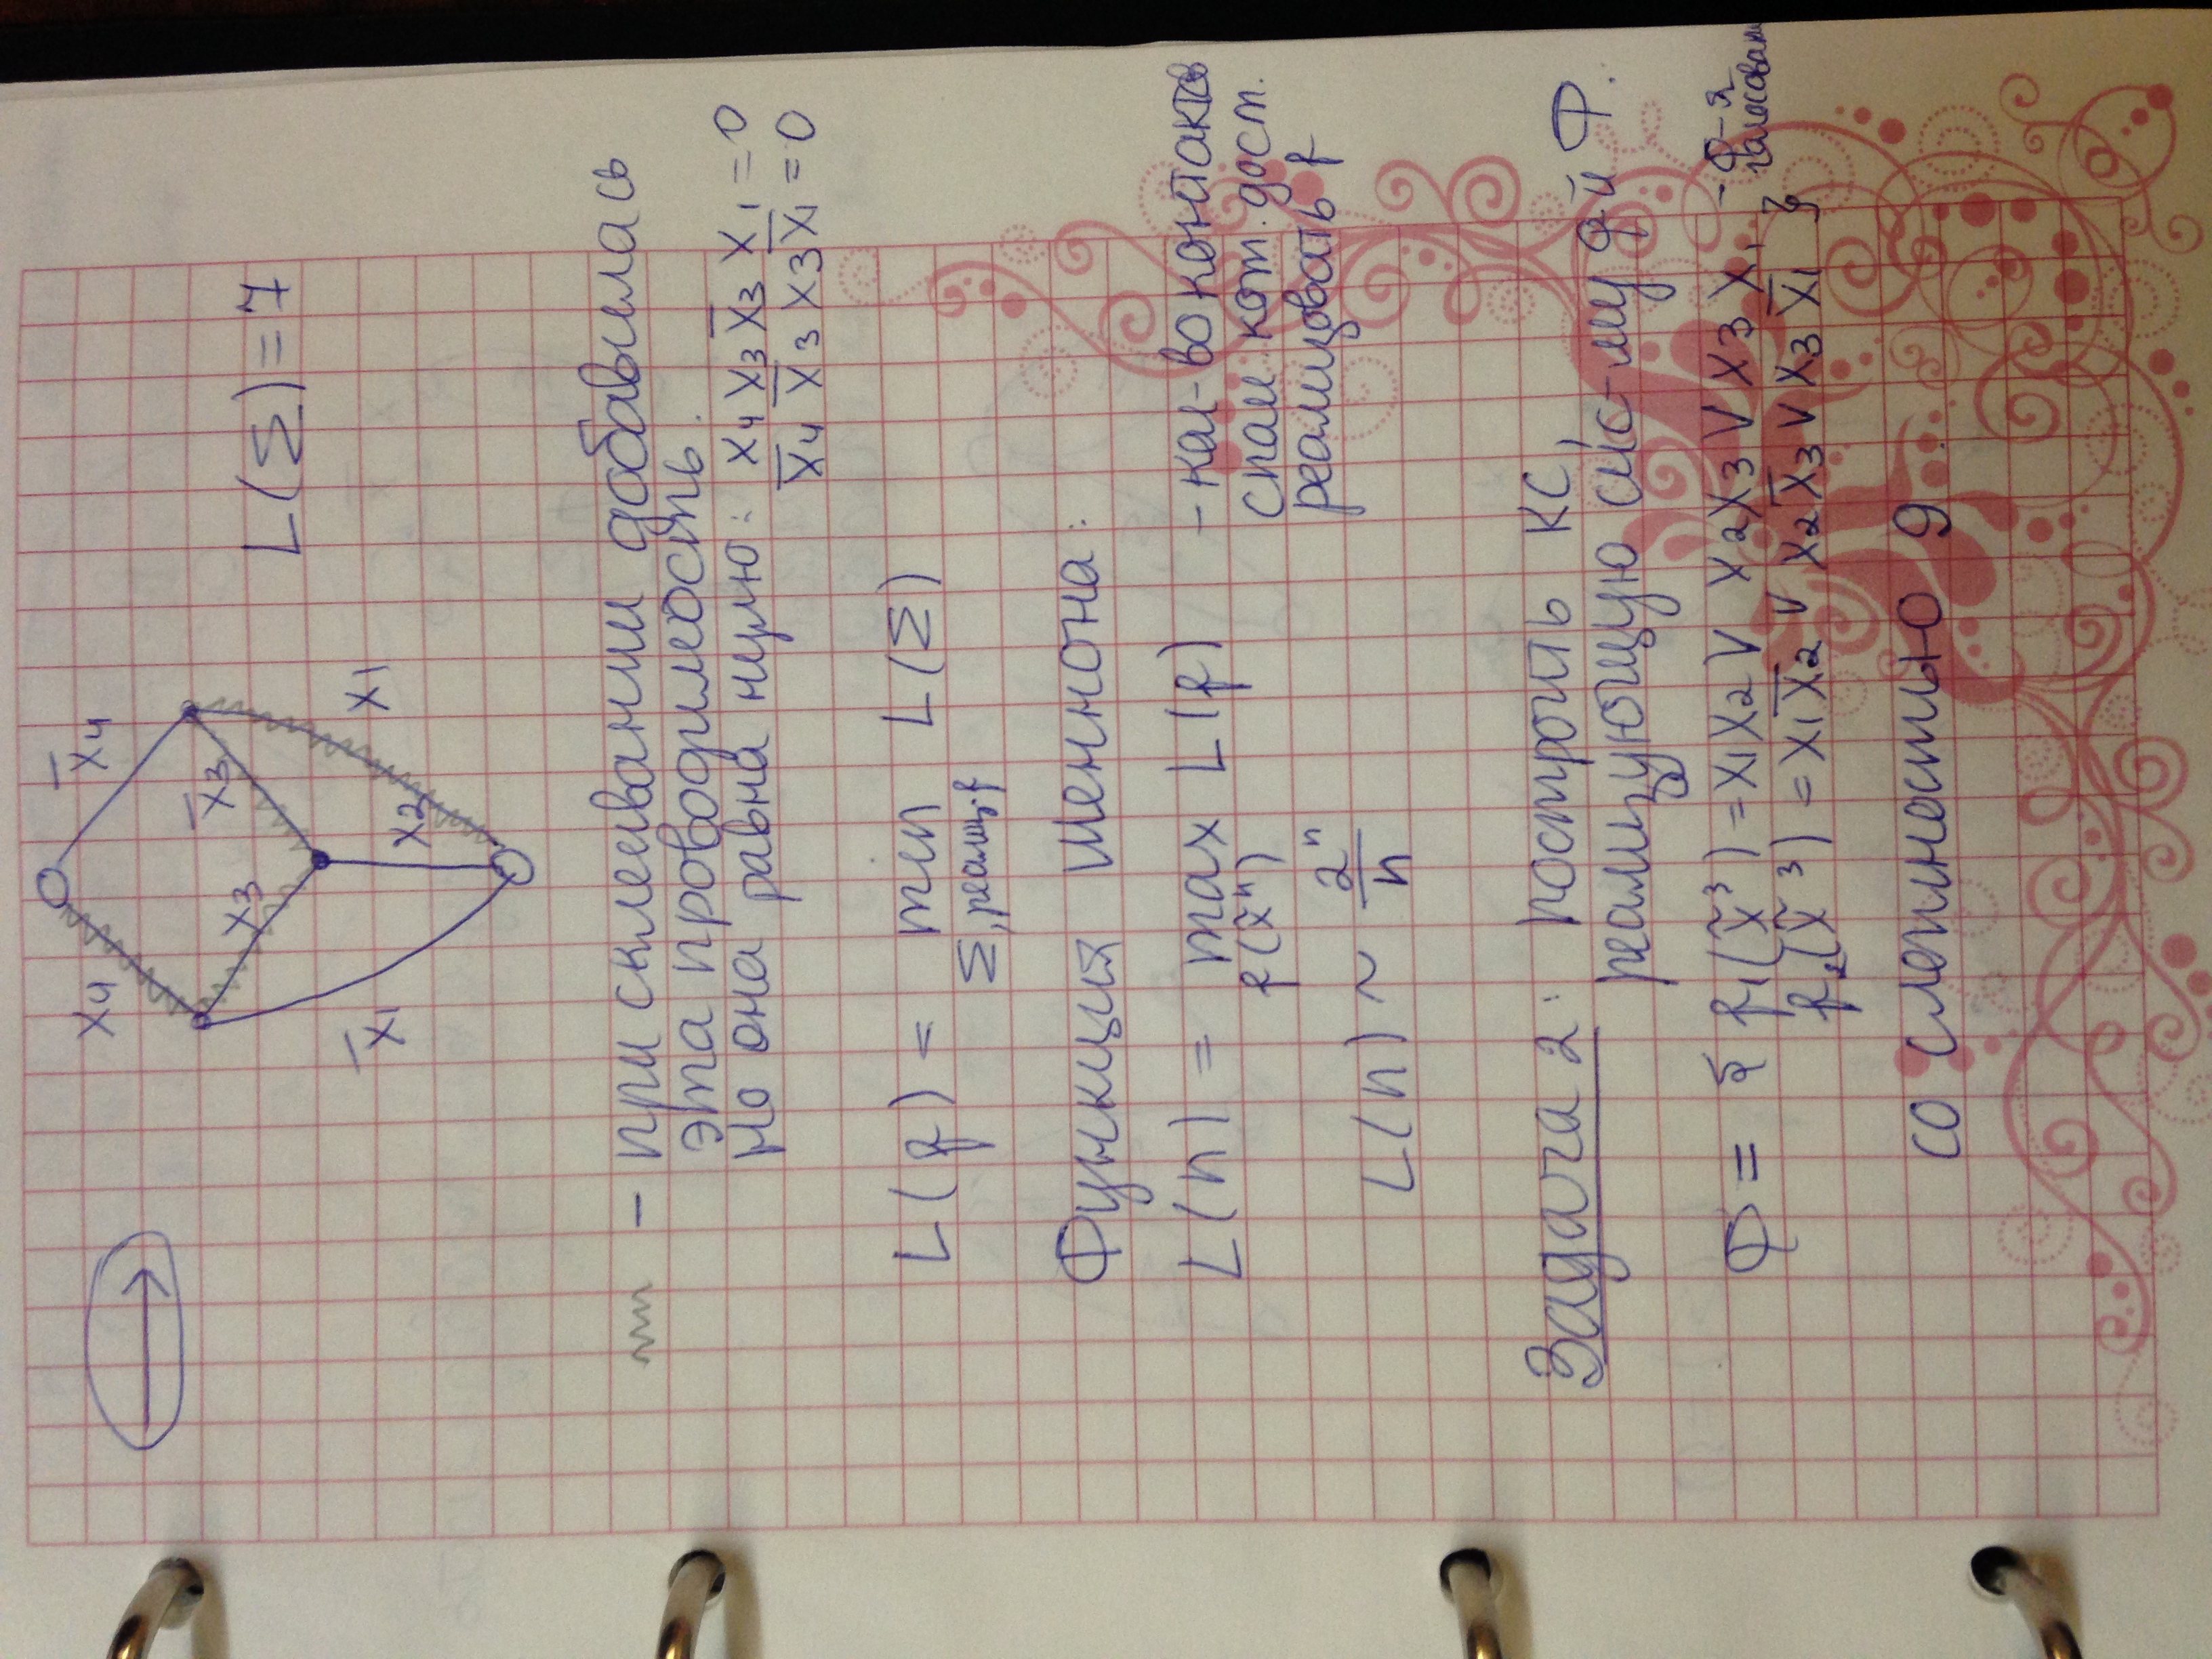 x̄4
x4
x̄3
x3
x1
x2
x̄1
L(Σ)=7
- при склеивании добавилась
эта проводимость.
Но она равна нулю: x4 x3 x̄3 x1 = 0
x̄4 x̄3 x3 x̄1 = 0
L(f) = min L(Σ)
Σ, реализ. f
Функция Шеннона:
L(n) = max L(f) - кол-во контактов
f(x̃ⁿ) спам кот. дост.
реализовать f
L(n) ~ 2ⁿ/n
Задача 2: построить КС,
реализующую сис-му ф-й Ф:
Ф = { f1(x̃³) = x1x2 V x2x3 V x3x1 - ф-я голосован
f2(x̃³) = x1x̄2 V x2x̄3 V x3x̄1 }
со сложностью 9